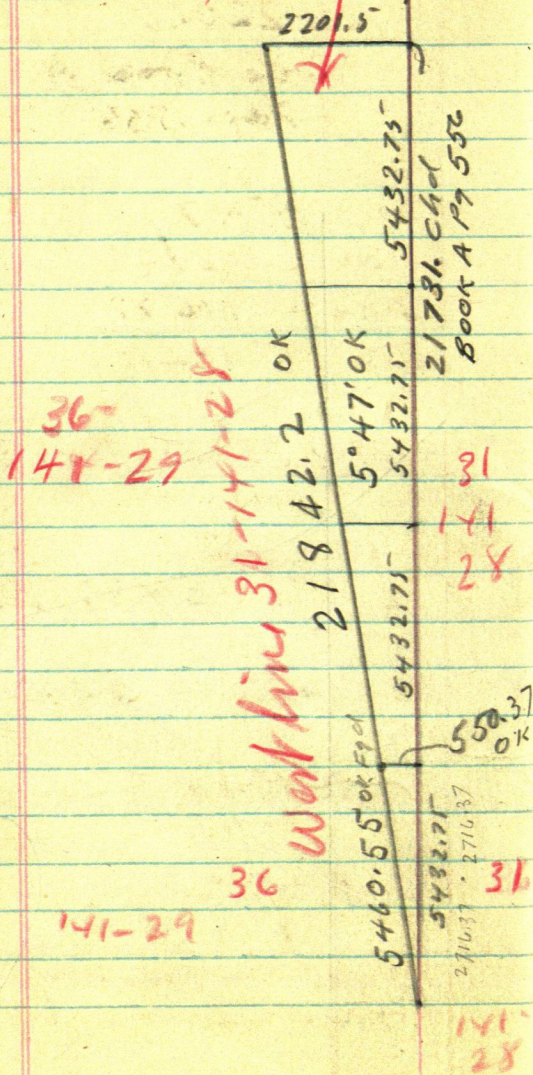 2201.5
5432.75
21731. Chd
BOOK A Pg 556
OK
21842.2
5°47' OK
5432.75
36
141-29
West line 31-141-28
31
141
28
5432.75
550.37
OK
5460.55 OK Fgd
5432.75
2716.37 · 2716.37
36
31
141-29
141-
28